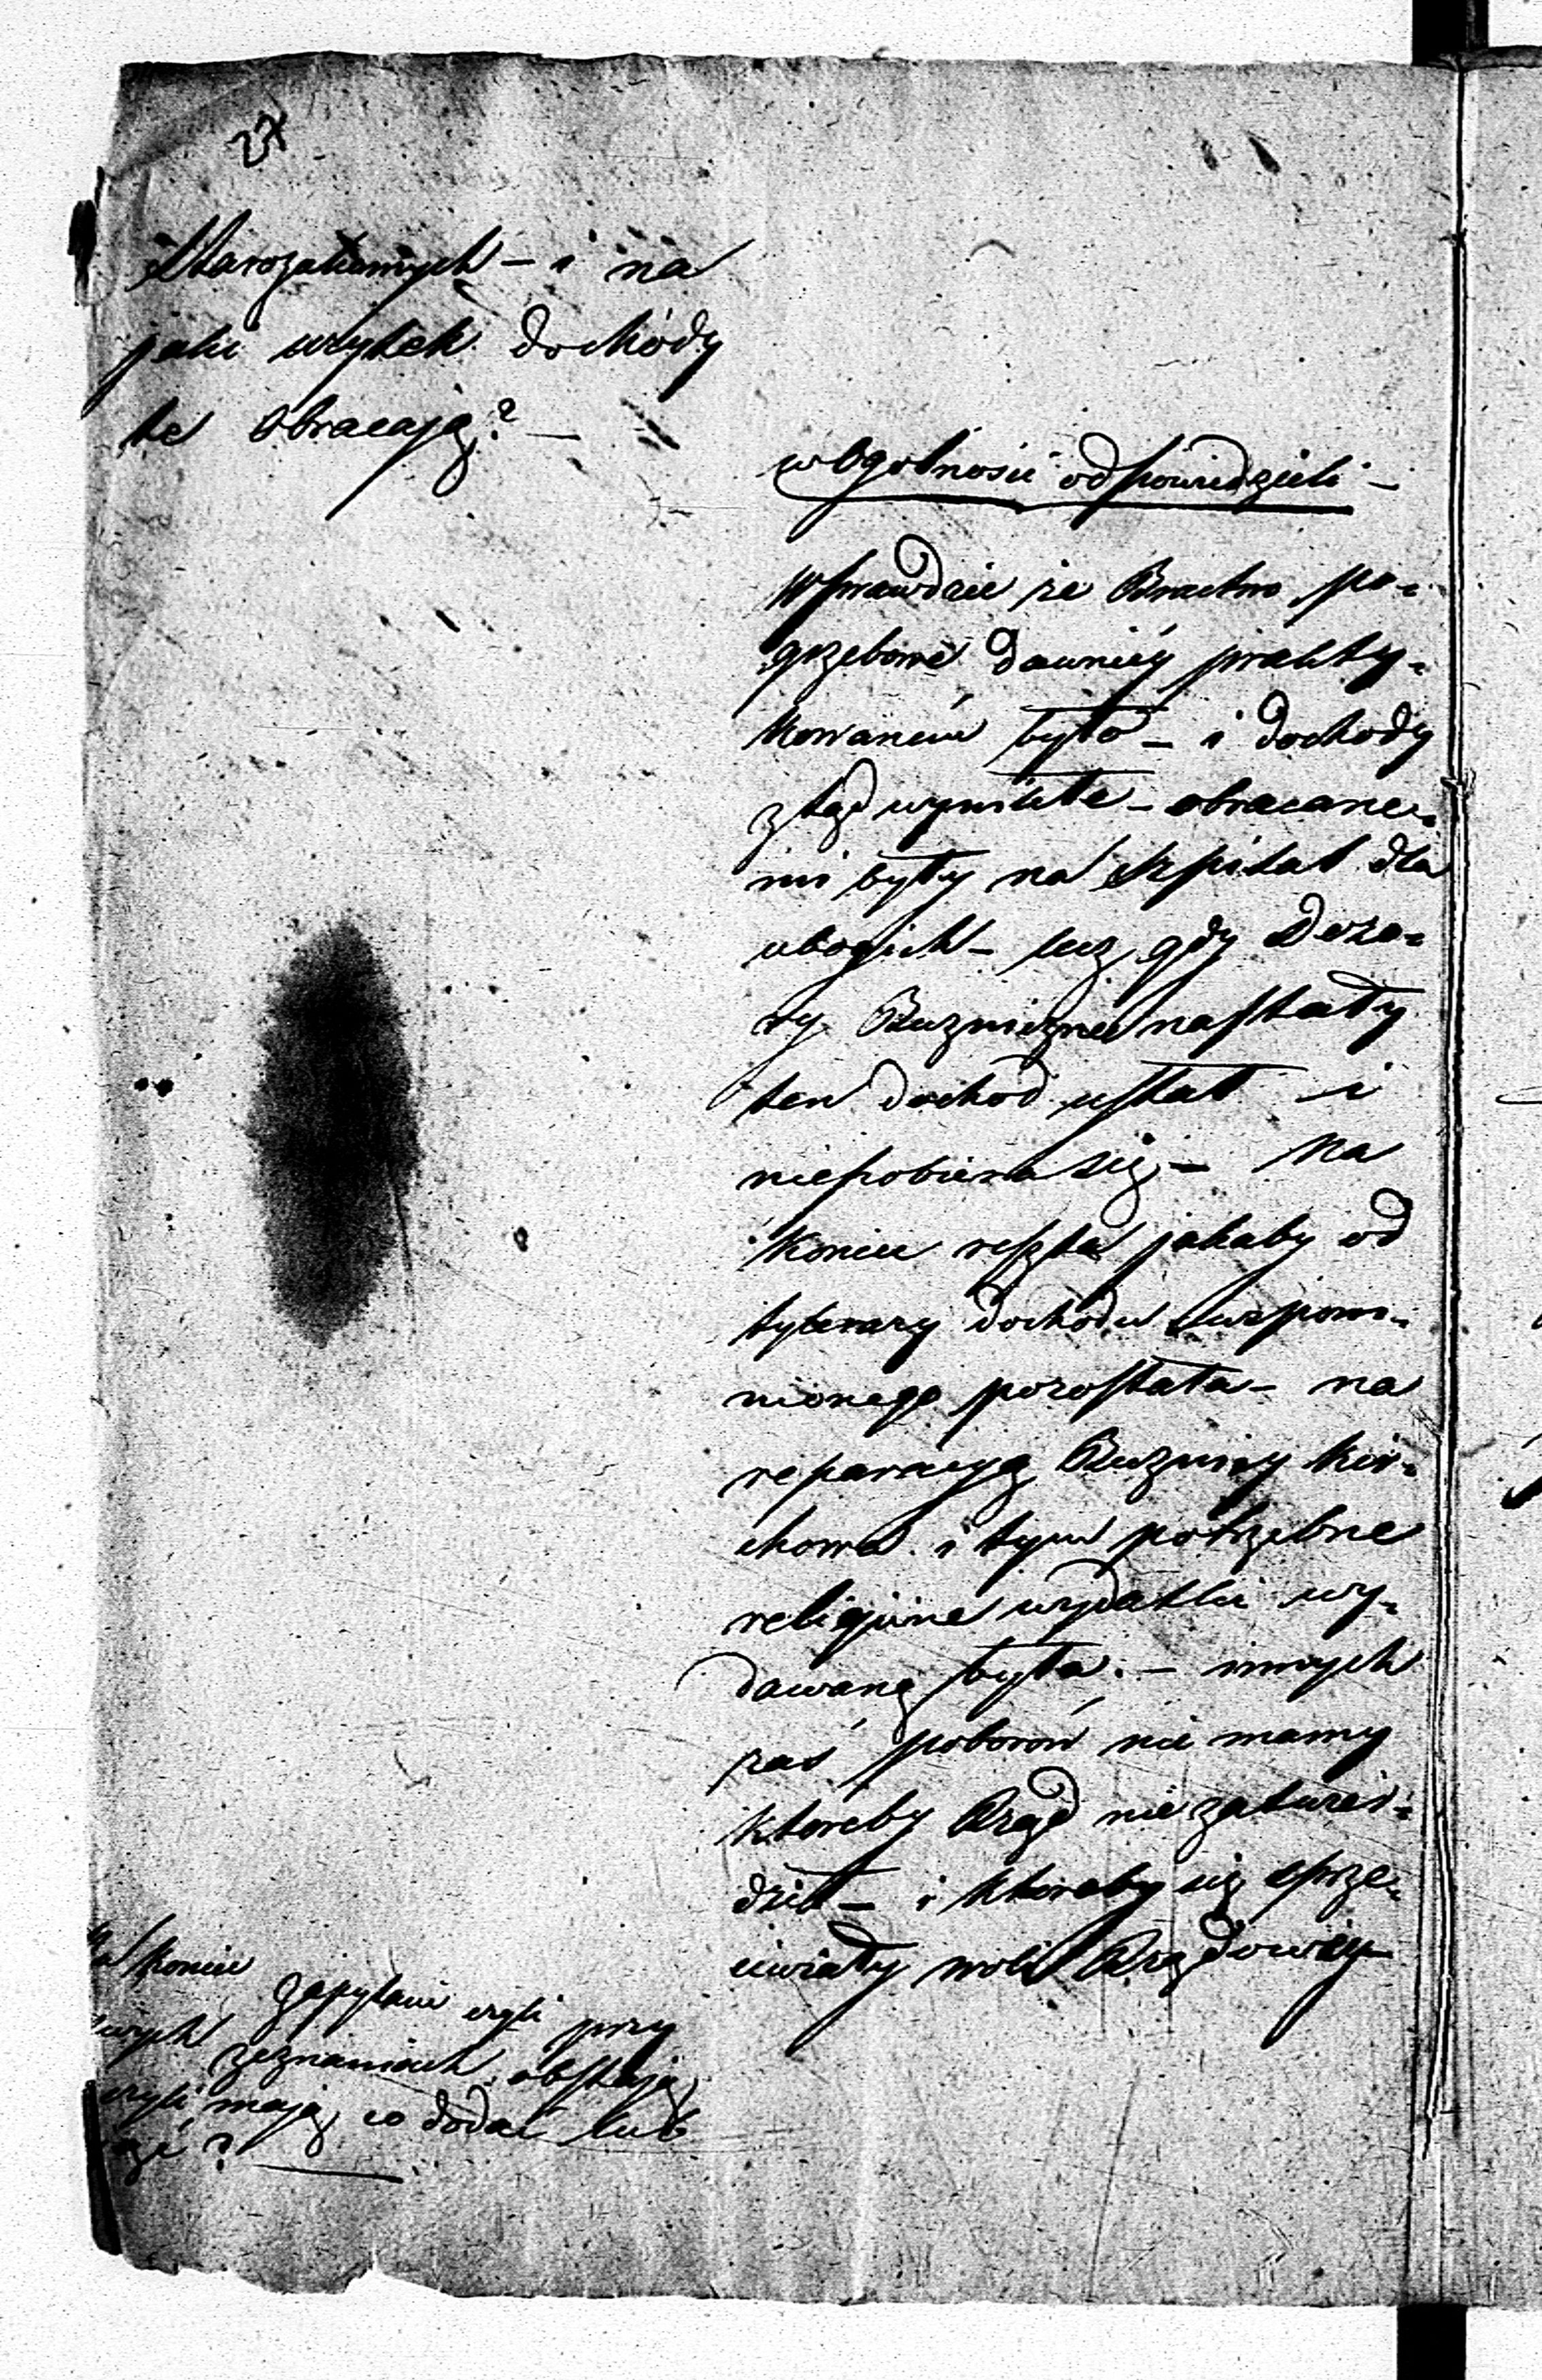 27
Starozakonnych – i na
jaki użytek dochódy
te obracają? –
w Ogolnosci odpowiedzieli –
Wprawdzie że Bractwo po-
grzebowe dawniéy prakty-
kowaném było – i dochody
ztąd wynikłe – obracane-
mi były na Szpital dla
ubogich – lecz gdy Dozo-
ry Bużniczne nastały
ten dochod ustał – i
niepobiera się – Na
koniec reszta jakaby od
tylerazy dochodu wspom-
nionego pozostała – na
reparacyą Bużnicy Kir-
chowa i tym potrzebne
religijne wydatki wy-
dawaną była. – innych
zaś poborów nie mamy
któreby Rząd nie zatwier-
dził – i któreby się sprze-
ciwiały woli Rządowéy
Na koniec
zapytani czyli przy
swych zeznaniach obstają
czyli mają co dodać lub